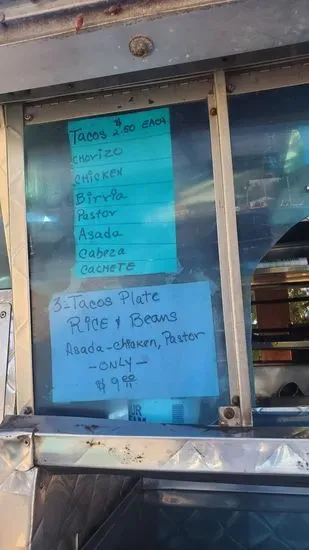 Tacos $2.50 EACH
CHORIZO
CHICKEN
Birria
Pastor
Asada
Cabeza
CACHETE
3-Tacos Plate
RICE & Beans
Asada-Chicken, Pastor
-ONLY-
$9.00